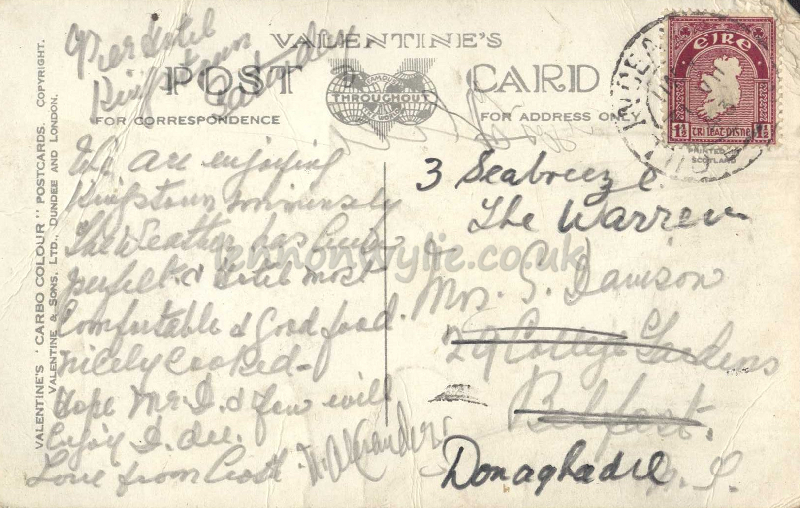 VALENTINE'S
POST CARD
FAMOUS
THROUGHOUT
THE WORLD
FOR CORRESPONDENCE
FOR ADDRESS ONLY
VALENTINE'S "CARBO COLOUR" POSTCARDS. COPYRIGHT.
VALENTINE & SONS, LTD., DUNDEE AND LONDON.
PRINTED IN
SCOTLAND
éire
1½ 1½
Pier Hotel
Kingstown
Saturday
We are enjoying
Kingstown immensely
The Weather has been
perfect & Hotel most
Comfortable & Good food.
nicely Cooked-
Hope Mr. D. & few will
Enjoy D. dee.
Love from Both
Alexanders
3 Seabreeze
The Warren
Mrs. S. Davison
29 College Gardens
Belfast.
Donaghadee
lennonwylie.co.uk